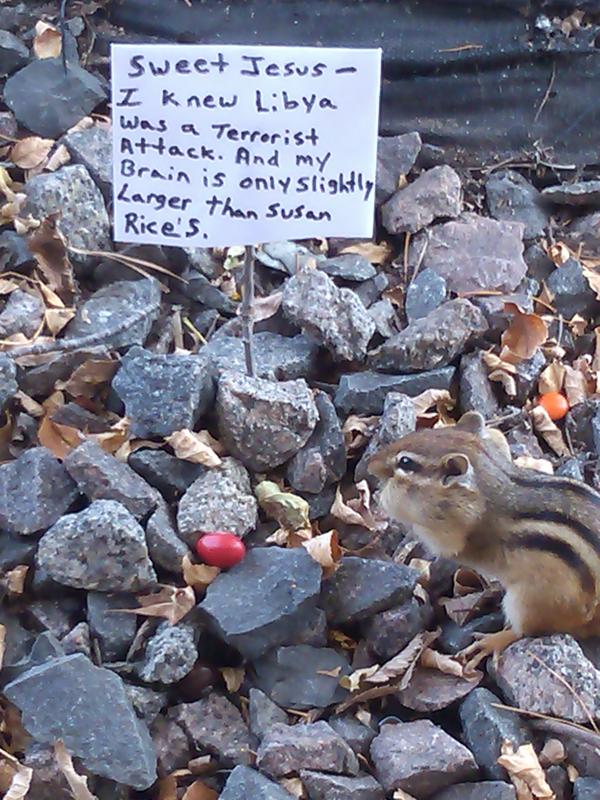 Sweet Jesus -
I knew Libya
was a Terrorist
Attack. And my
Brain is only slightly
Larger than Susan
Rice's.